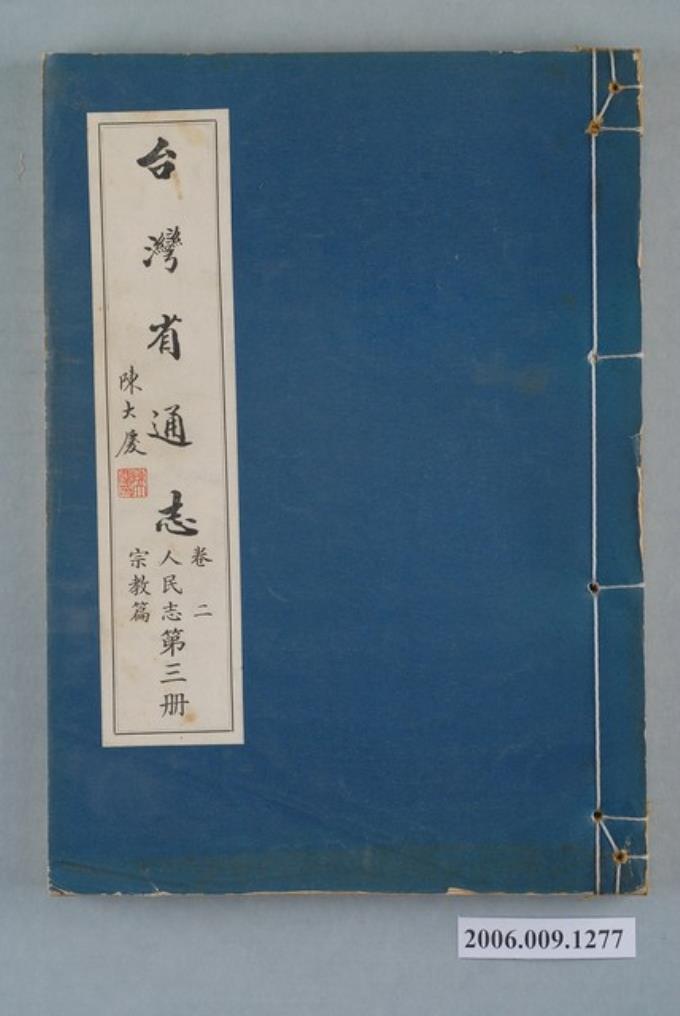 台灣省通志
卷二
人民志第三冊
宗教篇
陳大慶
2006.009.1277